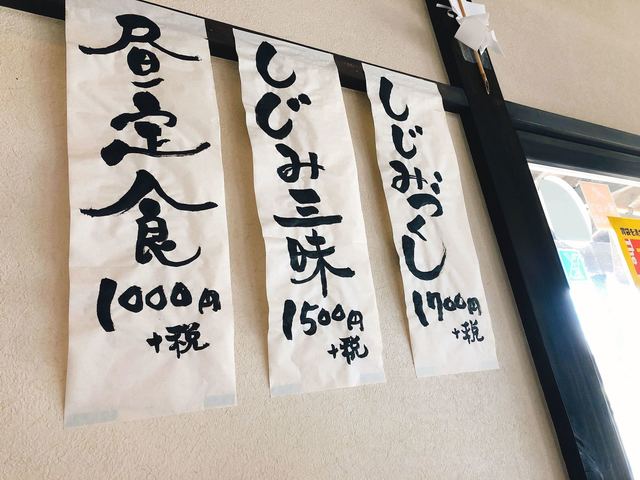 昼定食
1000円
+税
しじみ三昧
1500円
+税
しじみづくし
1700円
+税